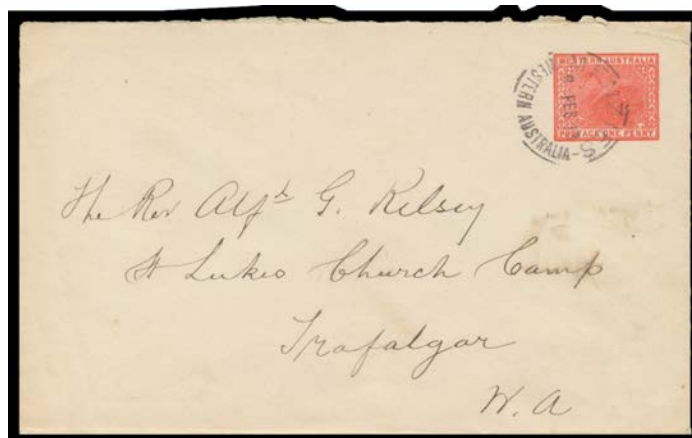 WESTERN AUSTRALIA
POSTAGE ONE PENNY
FEB
WESTERN AUSTRALIA
The Rev Alfd G. Kelsey
St Lukes Church Camp
Trafalgar
W. A